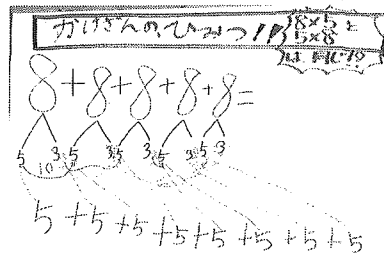 かけざんのひみつ!!
8×5と
5×8
は同じ!?
8+8+8+8+8=
5 3 5 3 5 3 5 3 5 3
10
5+5+5+5+5+5+5+5